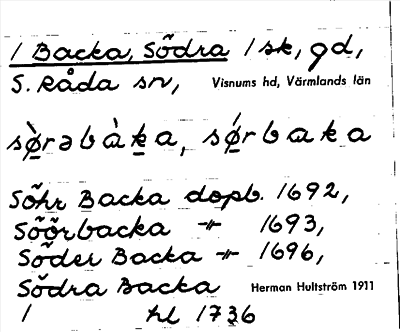 1 Backa, Södra 1 sk, gd,
S. Råda sn, Visnums hd, Värmlands län
sø̀rəbàka, sǿrbaka
Söhr Backa dopb. 1692,
Söörbacka –"– 1693,
Söder Backa –"– 1696,
Södra Backa Herman Hultström 1911
1 hl 1736